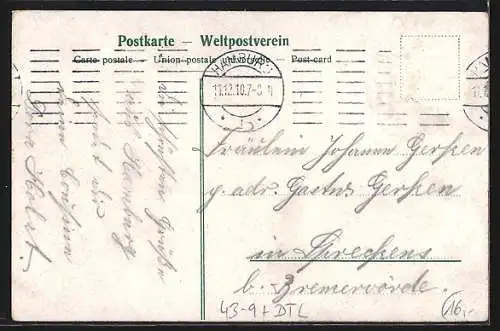 Postkarte – Weltpostverein
Carte postale – Union postale universelle – Post-card
HAMBURG
11.12.10.7-8 N
Die schönsten Grüße
aus Hamburg
sendet dir
deine Cousine
Dora Holst.
Fräulein Johanne Gerken
p. adr. Gastw. Gerken
in Spreckens
b. Bremervörde.
43-9+DTL
16,-